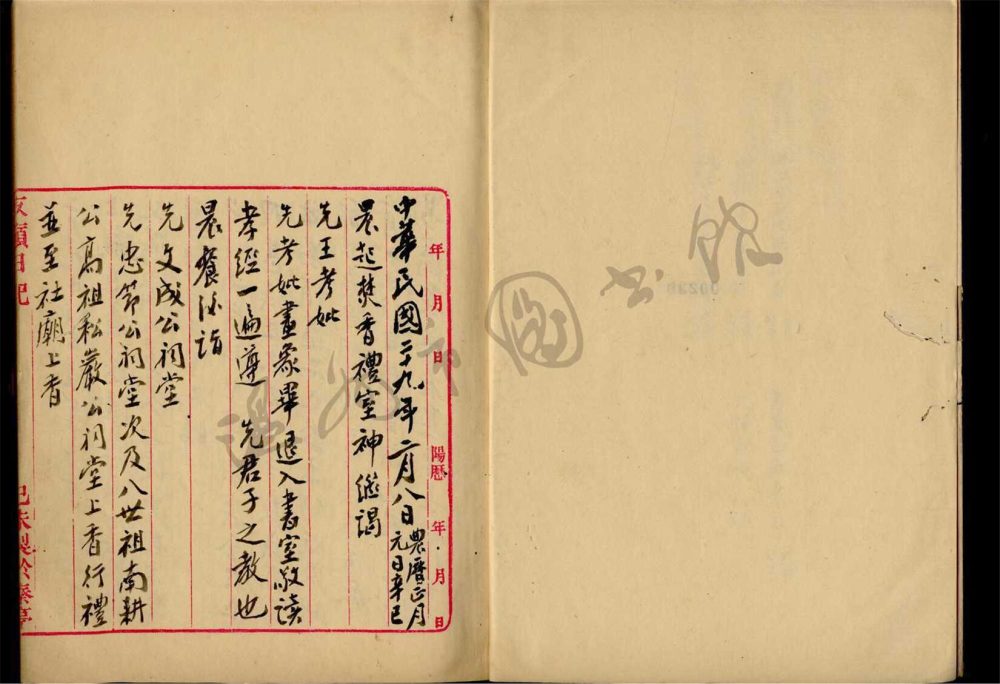 年 月 日 陽曆 年 月 日
中華民國二十九年二月八日 農曆正月
元日辛巳
晨起焚香禮室神繼謁
先王考妣
先考妣畫象畢退入書室敬讀
孝經一遍遵 先君子之教也
晨餐後詣
先文成公祠堂
先忠節公祠堂次及八世祖南耕
公高祖松巖公祠堂上香行禮
並至社廟上香
日記
己未製於
圖
館